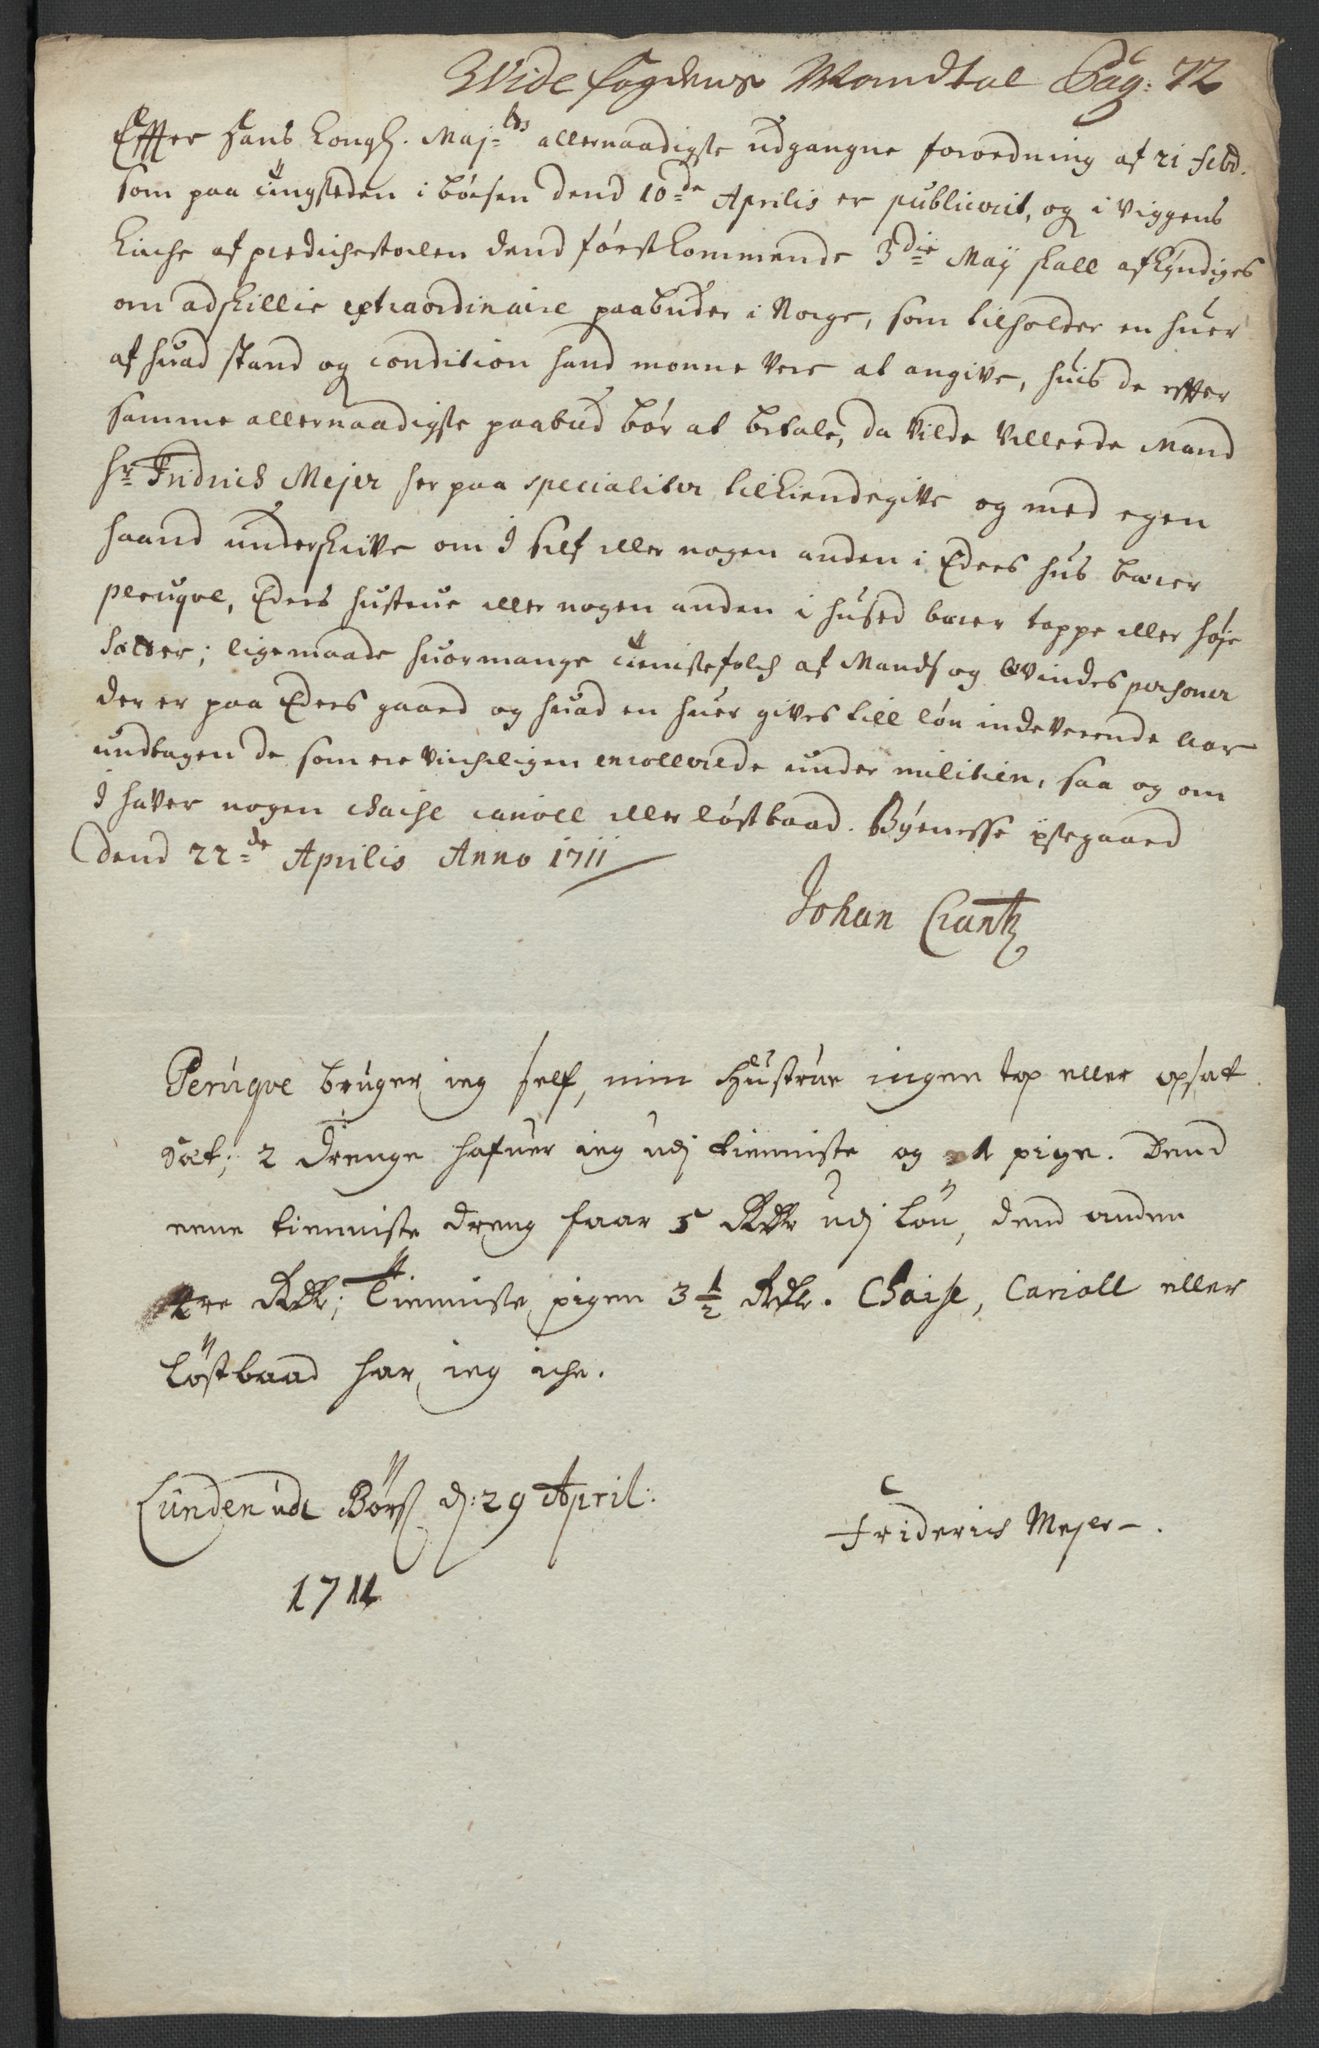 Vide fogdens Mandtal Pag: 72
Effter Hans Kongl. Maj:ts allernaadigste udgangne forordning af 21 Febr.
som paa tingsteden i Børsen dend 10de Aprilis er publicerit, og i Viggens
Kirche af predichestolen dend førstkommende 3die Maÿ skall afkyndiges
om adskillie extraordinaire paabuder i Norge, som tilholder en huer
af huad stand og condition hand monne vere at angive, huis de effter
samme allernaadigste paabud bør at betale, da vilde Velleerde Mand
Hr Fridrich Mejer her paa specialiter tilkiendegive og med egen
haand underskrive om I self eller nogen anden i Eders hus bærer
peruqve, Eders hustrue eller nogen anden i huset bærer toppe eller høje
sætter; ligemaade huormange tienistefolch af Mands og Qvindes personer
der er paa Eders gaard og huad en huer gives till løn indeverende Aar
undtagen de som ere virchligen enrollerede under militien, saa og om
I haver nogen chaise cariol eller løstbaad. Býenesse
dend 22de Aprilis Anno 1711
Johan Crantz
Peruqve bruger ieg self, min Hustrue ingen top eller opsat
Sæt; 2 drenge hafuer ieg udj tienniste og 1 pige. Dend
eene tienniste dreng faar 5 Rdlr udj løn, dend anden
tre Rdlr; Tienniste pigen 3 1/2 Rdlr. Chaise, Cariall eller
Løstbaad har ieg iche.
Lunden udi Børs d: 29 April:
1711
Friderich Mejer